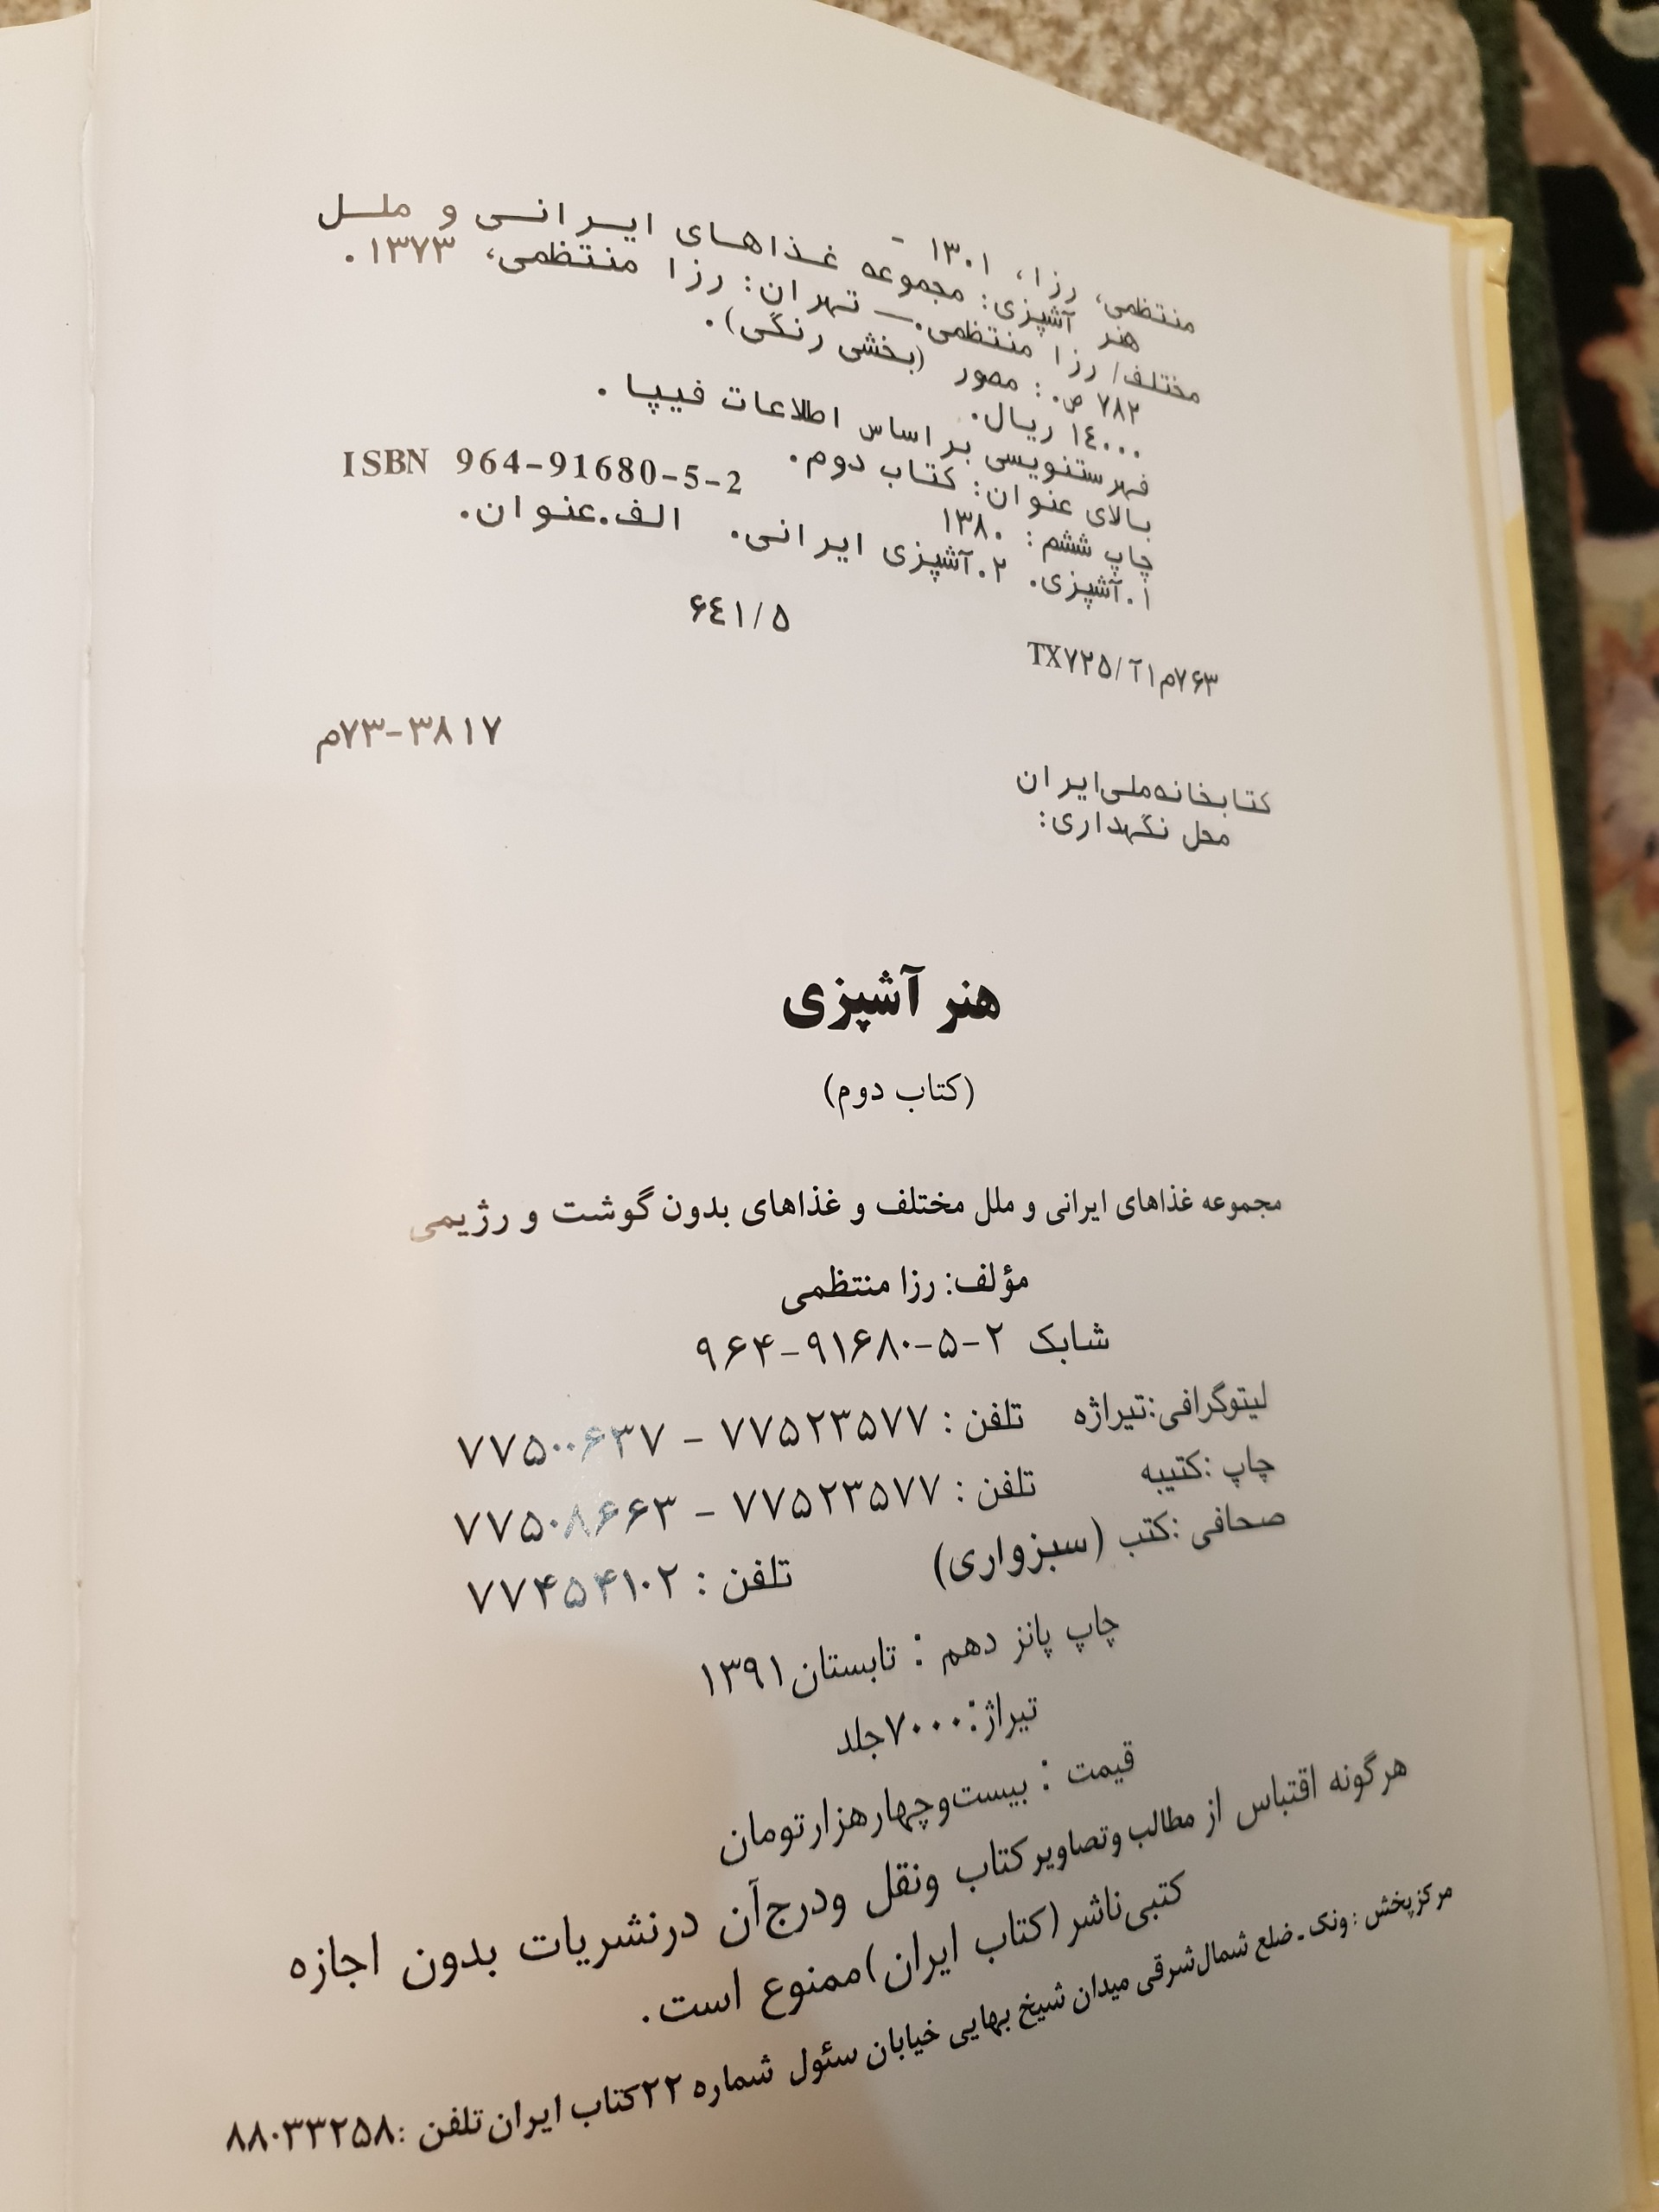 منتظمی، رزا، ۱۳۰۱ -
هنر آشپزی: مجموعه غذاهای ایرانی و ملل
مختلف/ رزا منتظمی.— تهران: رزا منتظمی، ۱۳۷۳.
۷۸۲ ص.: مصور (بخشی رنگی).
۱٤۰۰۰ ریال.
فهرستنویسی براساس اطلاعات فیپا.
بالای عنوان: کتاب دوم.
چاپ ششم: ۱۳۸۰ ISBN 964-91680-5-2
۱.آشپزی. ۲.آشپزی ایرانی. الف.عنوان.
۶٤۱/۵
TX۷۲۵/آ۱م۷۶۳
م۷۳-۳۸۱۷
کتابخانه‌ملی‌ایران
محل نگهداری:
هنر آشپزی
(کتاب دوم)
مجموعه غذاهای ایرانی و ملل مختلف و غذاهای بدون گوشت و رژیمی
مؤلف: رزا منتظمی
شابک ۲-۵-۹۱۶۸۰-۹۶۴
لیتوگرافی:تیراژه تلفن : ۷۷۵۲۳۵۷۷ - ۷۷۵۰۰۶۳۷
چاپ :کتیبه تلفن : ۷۷۵۲۳۵۷۷ - ۷۷۵۰۸۶۶۳
صحافی :کتب (سبزواری) تلفن : ۷۷۴۵۴۱۰۲
چاپ پانز دهم : تابستان۱۳۹۱
تیراژ:۷۰۰۰جلد
قیمت : بیست‌وچهارهزارتومان
هرگونه اقتباس از مطالب وتصاویرکتاب ونقل ودرج‌آن درنشریات بدون اجازه
کتبی‌ناشر (کتاب ایران)ممنوع است.
مرکزپخش :ونک-ضلع شمال‌شرقی میدان شیخ بهایی خیابان سئول شماره ۲۲کتاب ایران تلفن :۸۸۰۳۳۲۵۸